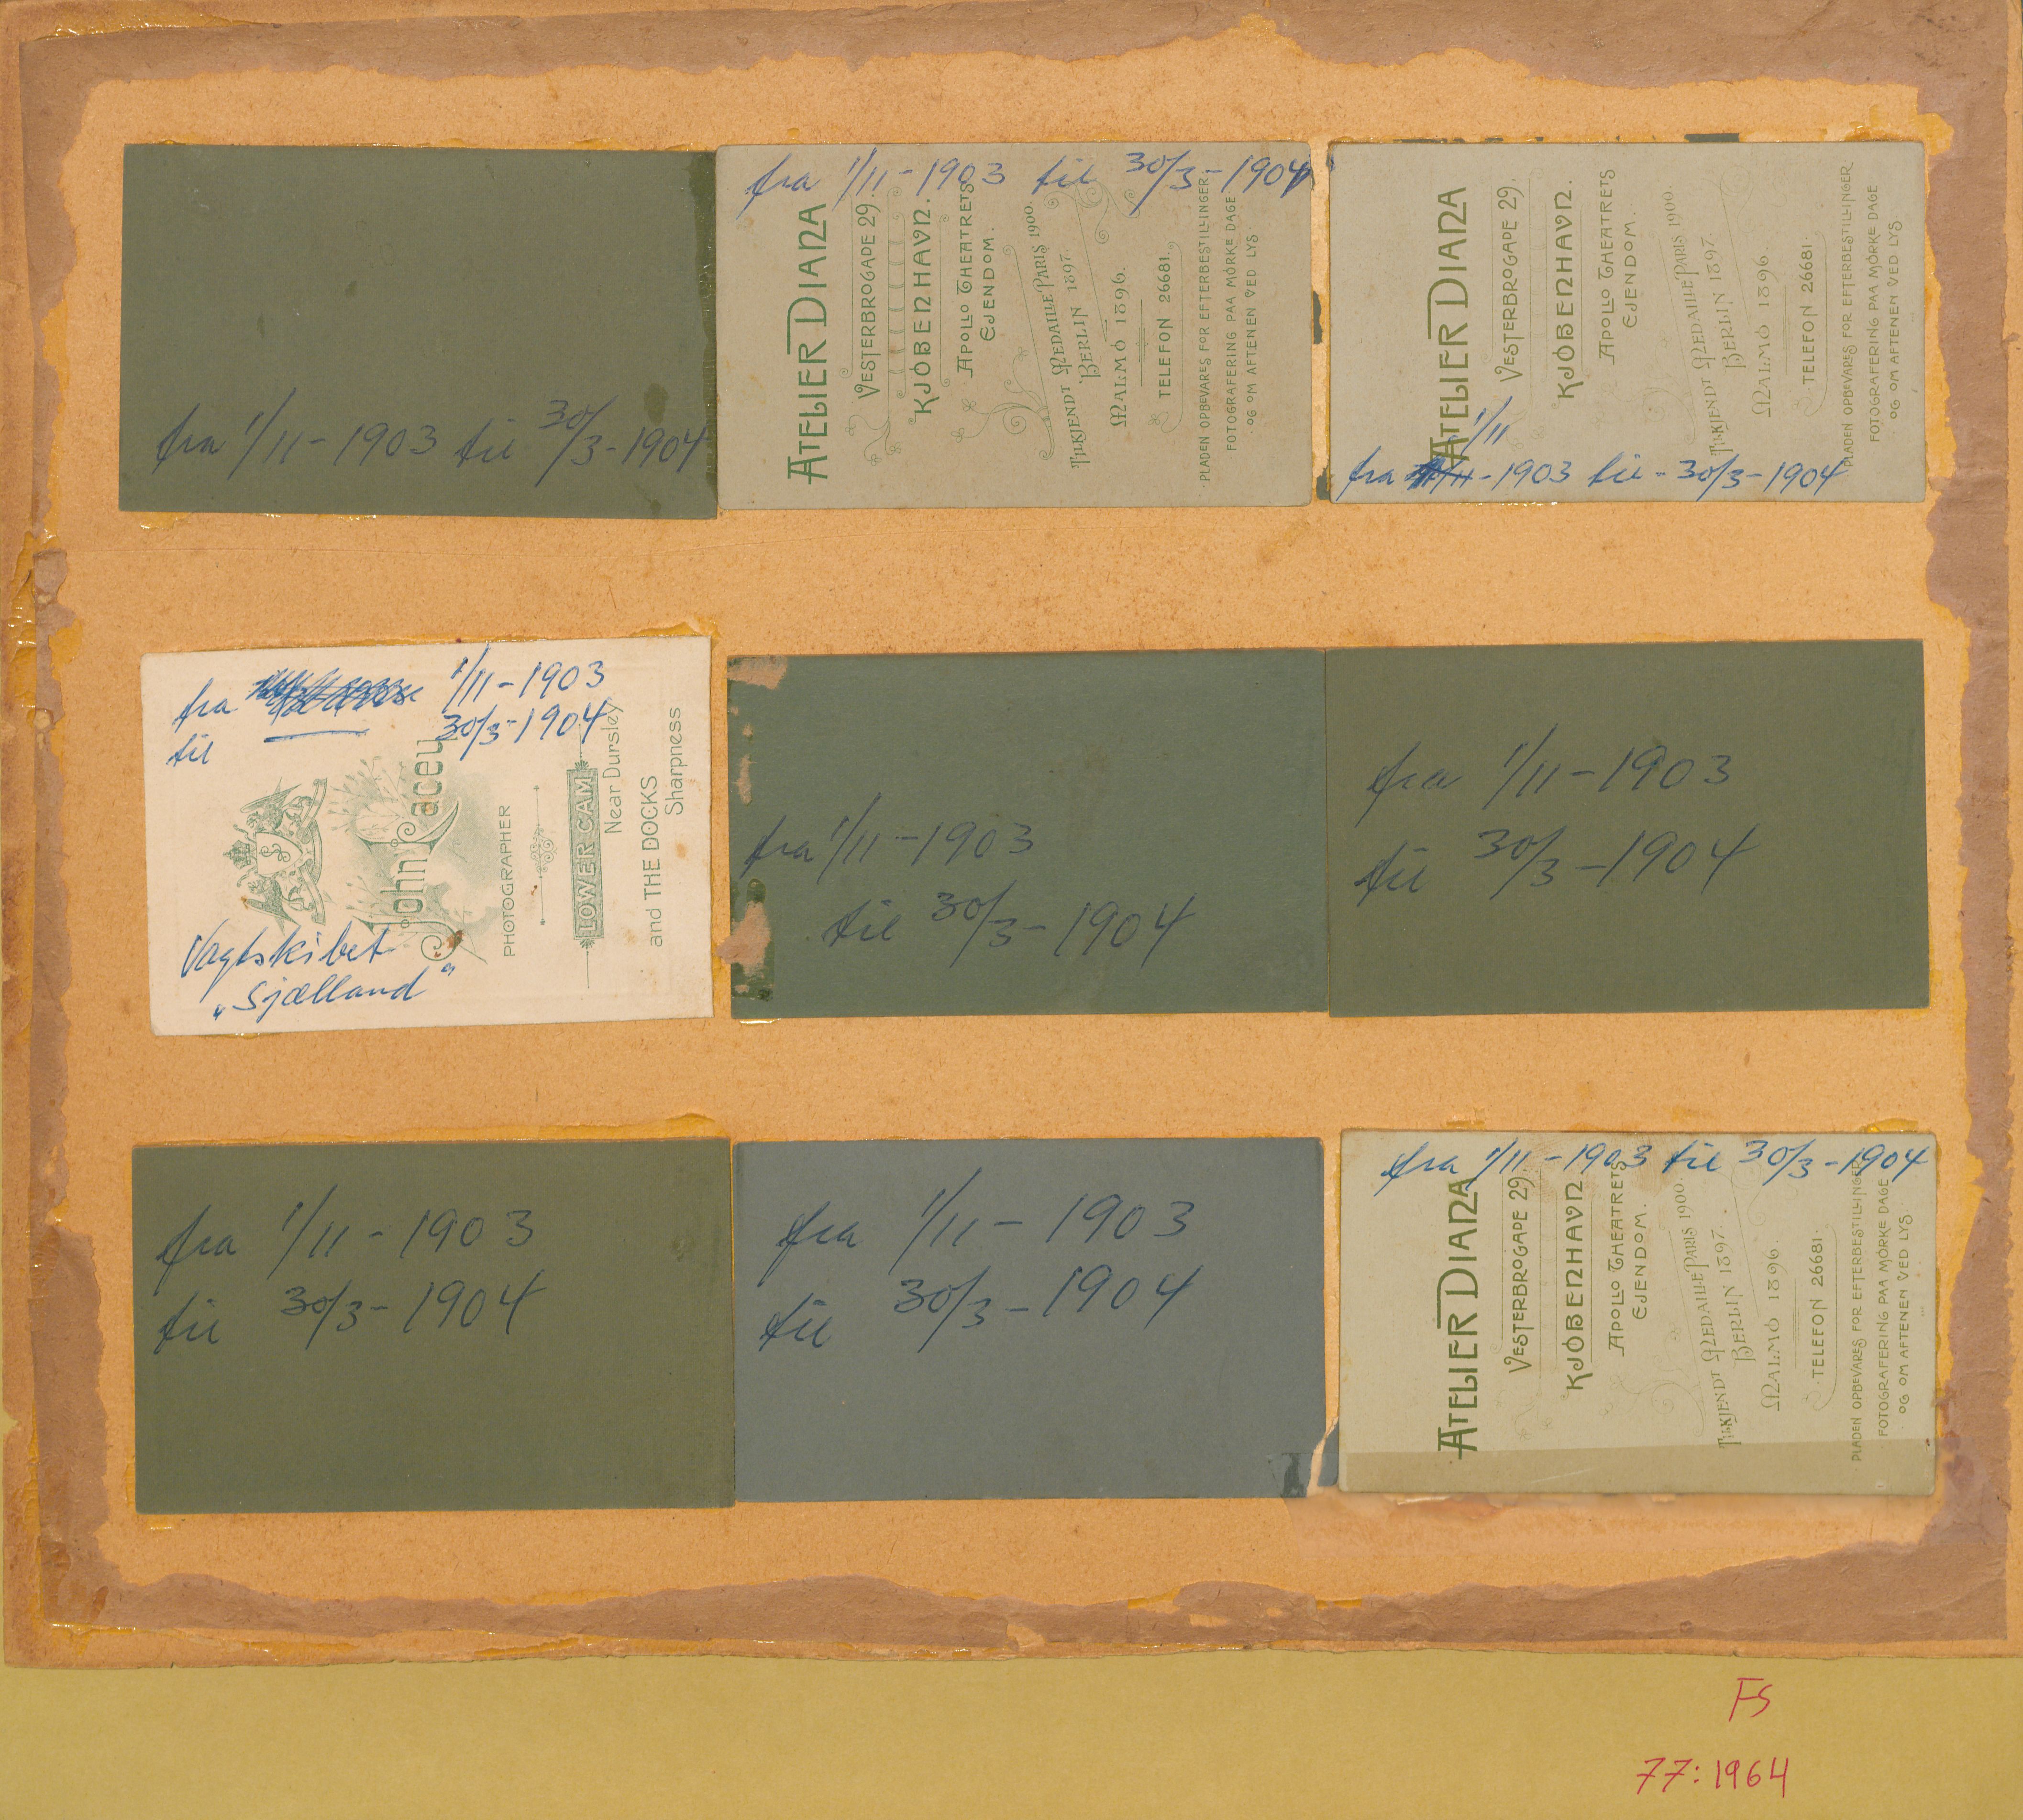 fra 1/11-1903 til 30/3-1904
fra 1/11-1903 til 30/3-1904
ATELIER DIANA
VESTERBROGADE 29.
KJÖBENHAVN.
APOLLO THEATRETS
EJENDOM.
TILKJENDT MEDAILLE PARIS 1900.
BERLIN 1897.
MALMÖ 1896.
TELEFON 26681.
PLADEN OPBEVARES FOR EFTERBESTILLINGER
FOTOGRAFERING PAA MÖRKE DAGE
OG OM AFTENEN VED LYS
ATELIER DIANA
VESTERBROGADE 29.
KJÖBENHAVN.
APOLLO THEATRETS
EJENDOM.
TILKJENDT MEDAILLE PARIS 1900.
BERLIN 1897.
MALMÖ 1896.
TELEFON 26681.
PLADEN OPBEVARES FOR EFTERBESTILLINGER
FOTOGRAFERING PAA MÖRKE DAGE
OG OM AFTENEN VED LYS
1/11
fra -1903 til - 30/3-1904
fra 1/11-1903
til 30/3-1904
John Lacey
PHOTOGRAPHER
LOWER CAM
Near Dursley
and THE DOCKS
Sharpness
Vagtskibet
„Sjælland"
fra 1/11-1903
til 30/3-1904
fra 1/11-1903
til 30/3-1904
fra 1/11-1903
til 30/3-1904
fra 1/11-1903
til 30/3-1904
fra 1/11-1903 til 30/3-1904
ATELIER DIANA
VESTERBROGADE 29.
KJÖBENHAVN.
APOLLO THEATRETS
EJENDOM.
TILKJENDT MEDAILLE PARIS 1900.
BERLIN 1897.
MALMÖ 1896.
TELEFON 26681.
PLADEN OPBEVARES FOR EFTERBESTILLINGER
FOTOGRAFERING PAA MÖRKE DAGE
OG OM AFTENEN VED LYS
FS
77:1964